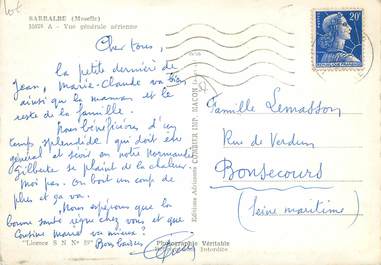 10€
SARRALBE (Moselle)
A - Vue générale aérienne
Cher tous,
la petite dernière de
Jean, Marie-Claude va bien
ainsi que la maman et le
reste de la famille.
Nous bénéficions d'un
temps splendide qui doit être
général et si
notre normande
Gilberte se plaint de la chaleur.
Moi pas. On boit un coup de
plus et ça va.
Nous espérons que la
bonne santé règne chez vous et que
Cousine Marie va mieux ?
Bons baisers
"Licence S N N° 59"
Photographie Véritable
Interdite
Editions Aériennes COMBIER IMP. MACON
20F
Famille Lemasson
Rue de Verdun
Bonsecours
(Seine maritime)